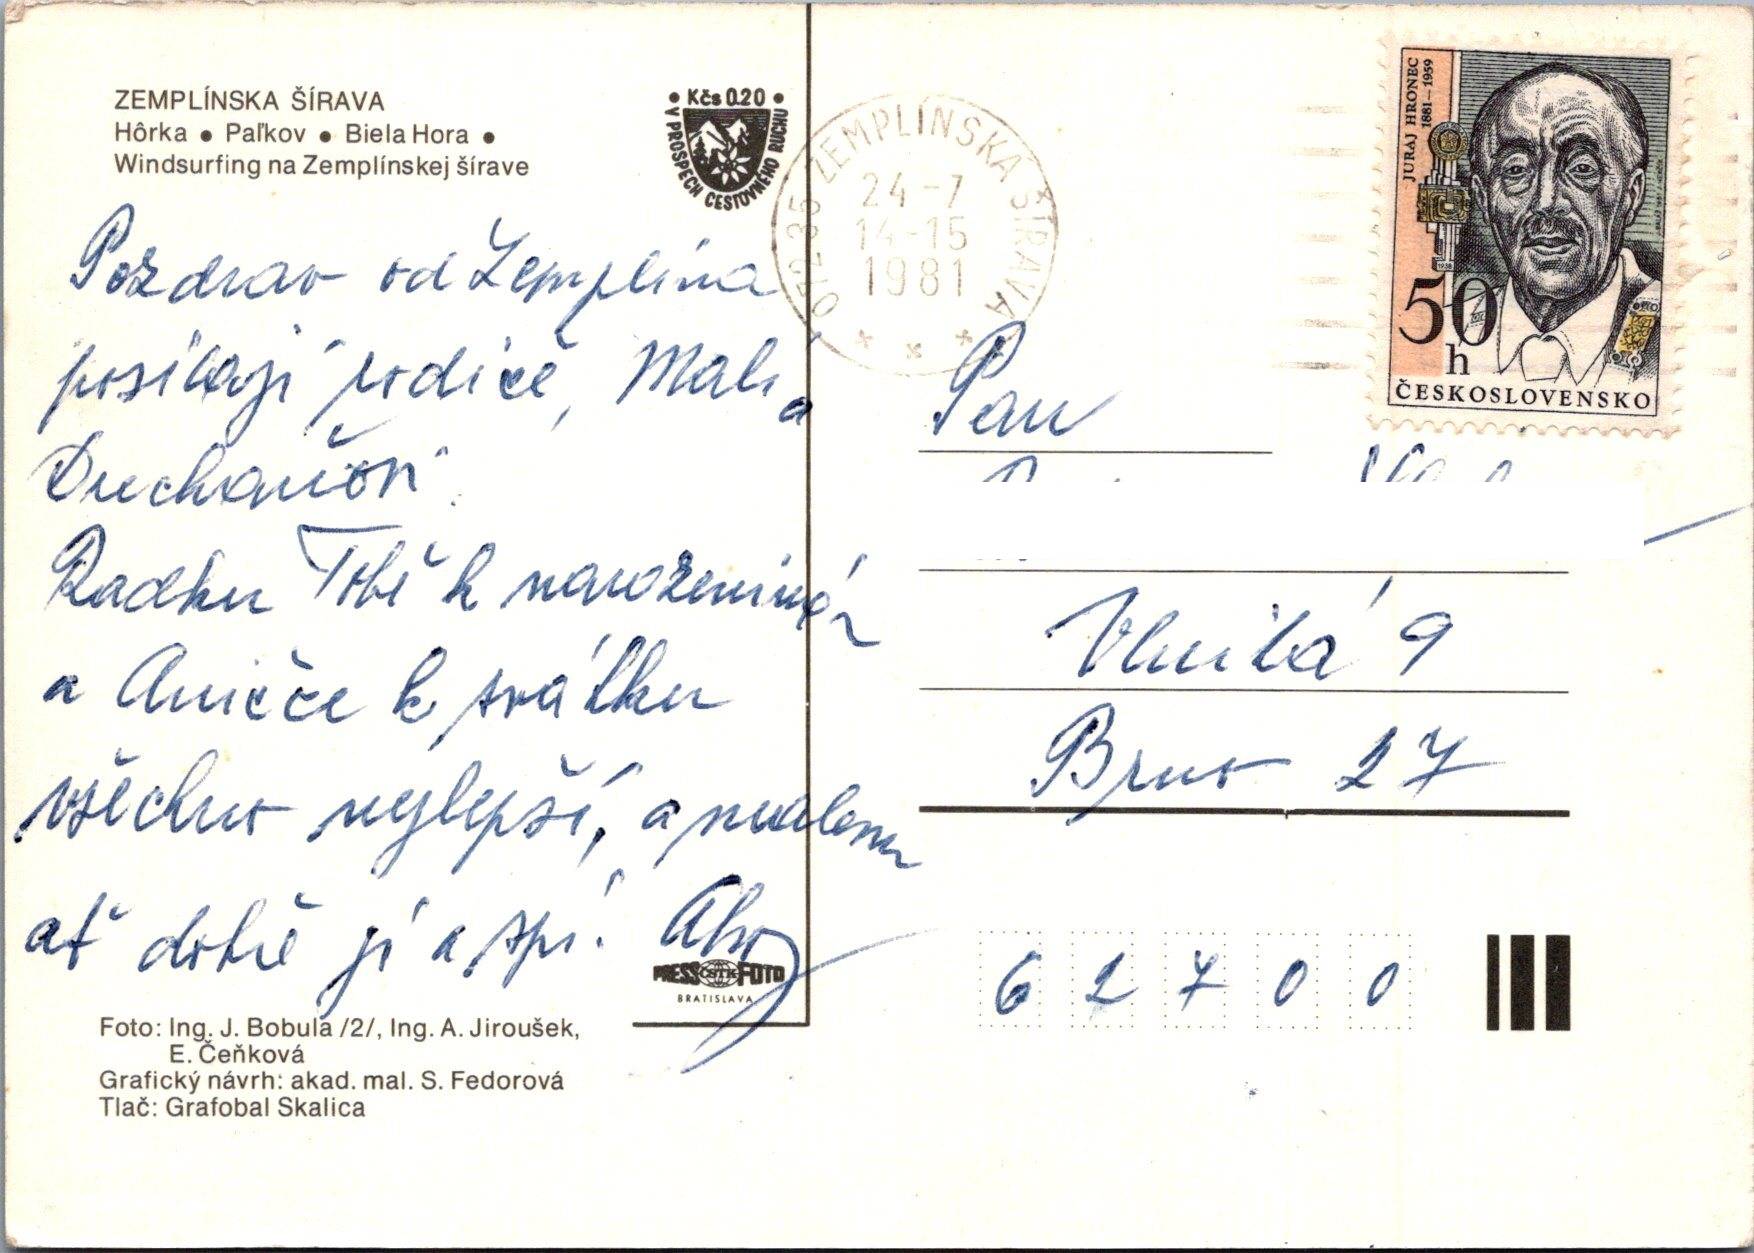 ZEMPLÍNSKA ŠÍRAVA
Hôrka ● Paľkov ● Biela Hora ●
Windsurfing na Zemplínskej šírave
● Kčs 0.20 ●
V PROSPECH CESTOVNÉHO RUCHU
Pozdrav od Zemplína
posílají rodiče, Malí a
Radku Tobě k narozeninám
a Aničče k svátku
všechno nejlepší, a malému
ať dobře jí a spí. Ahoj
PRESS ČSTK FOTO
BRATISLAVA
Foto: Ing. J. Bobula /2/, Ing. A. Jiroušek,
E. Čeňková
Grafický návrh: akad. mal. S. Fedorová
Tlač: Grafobal Skalica
072 35 ZEMPLÍNSKA ŠÍRAVA
24-7
14-15
1981
JURAJ HRONEC
1881–1959
50
h
ČESKOSLOVENSKO
Pan
Vlnitá 9
Brno 27
62700